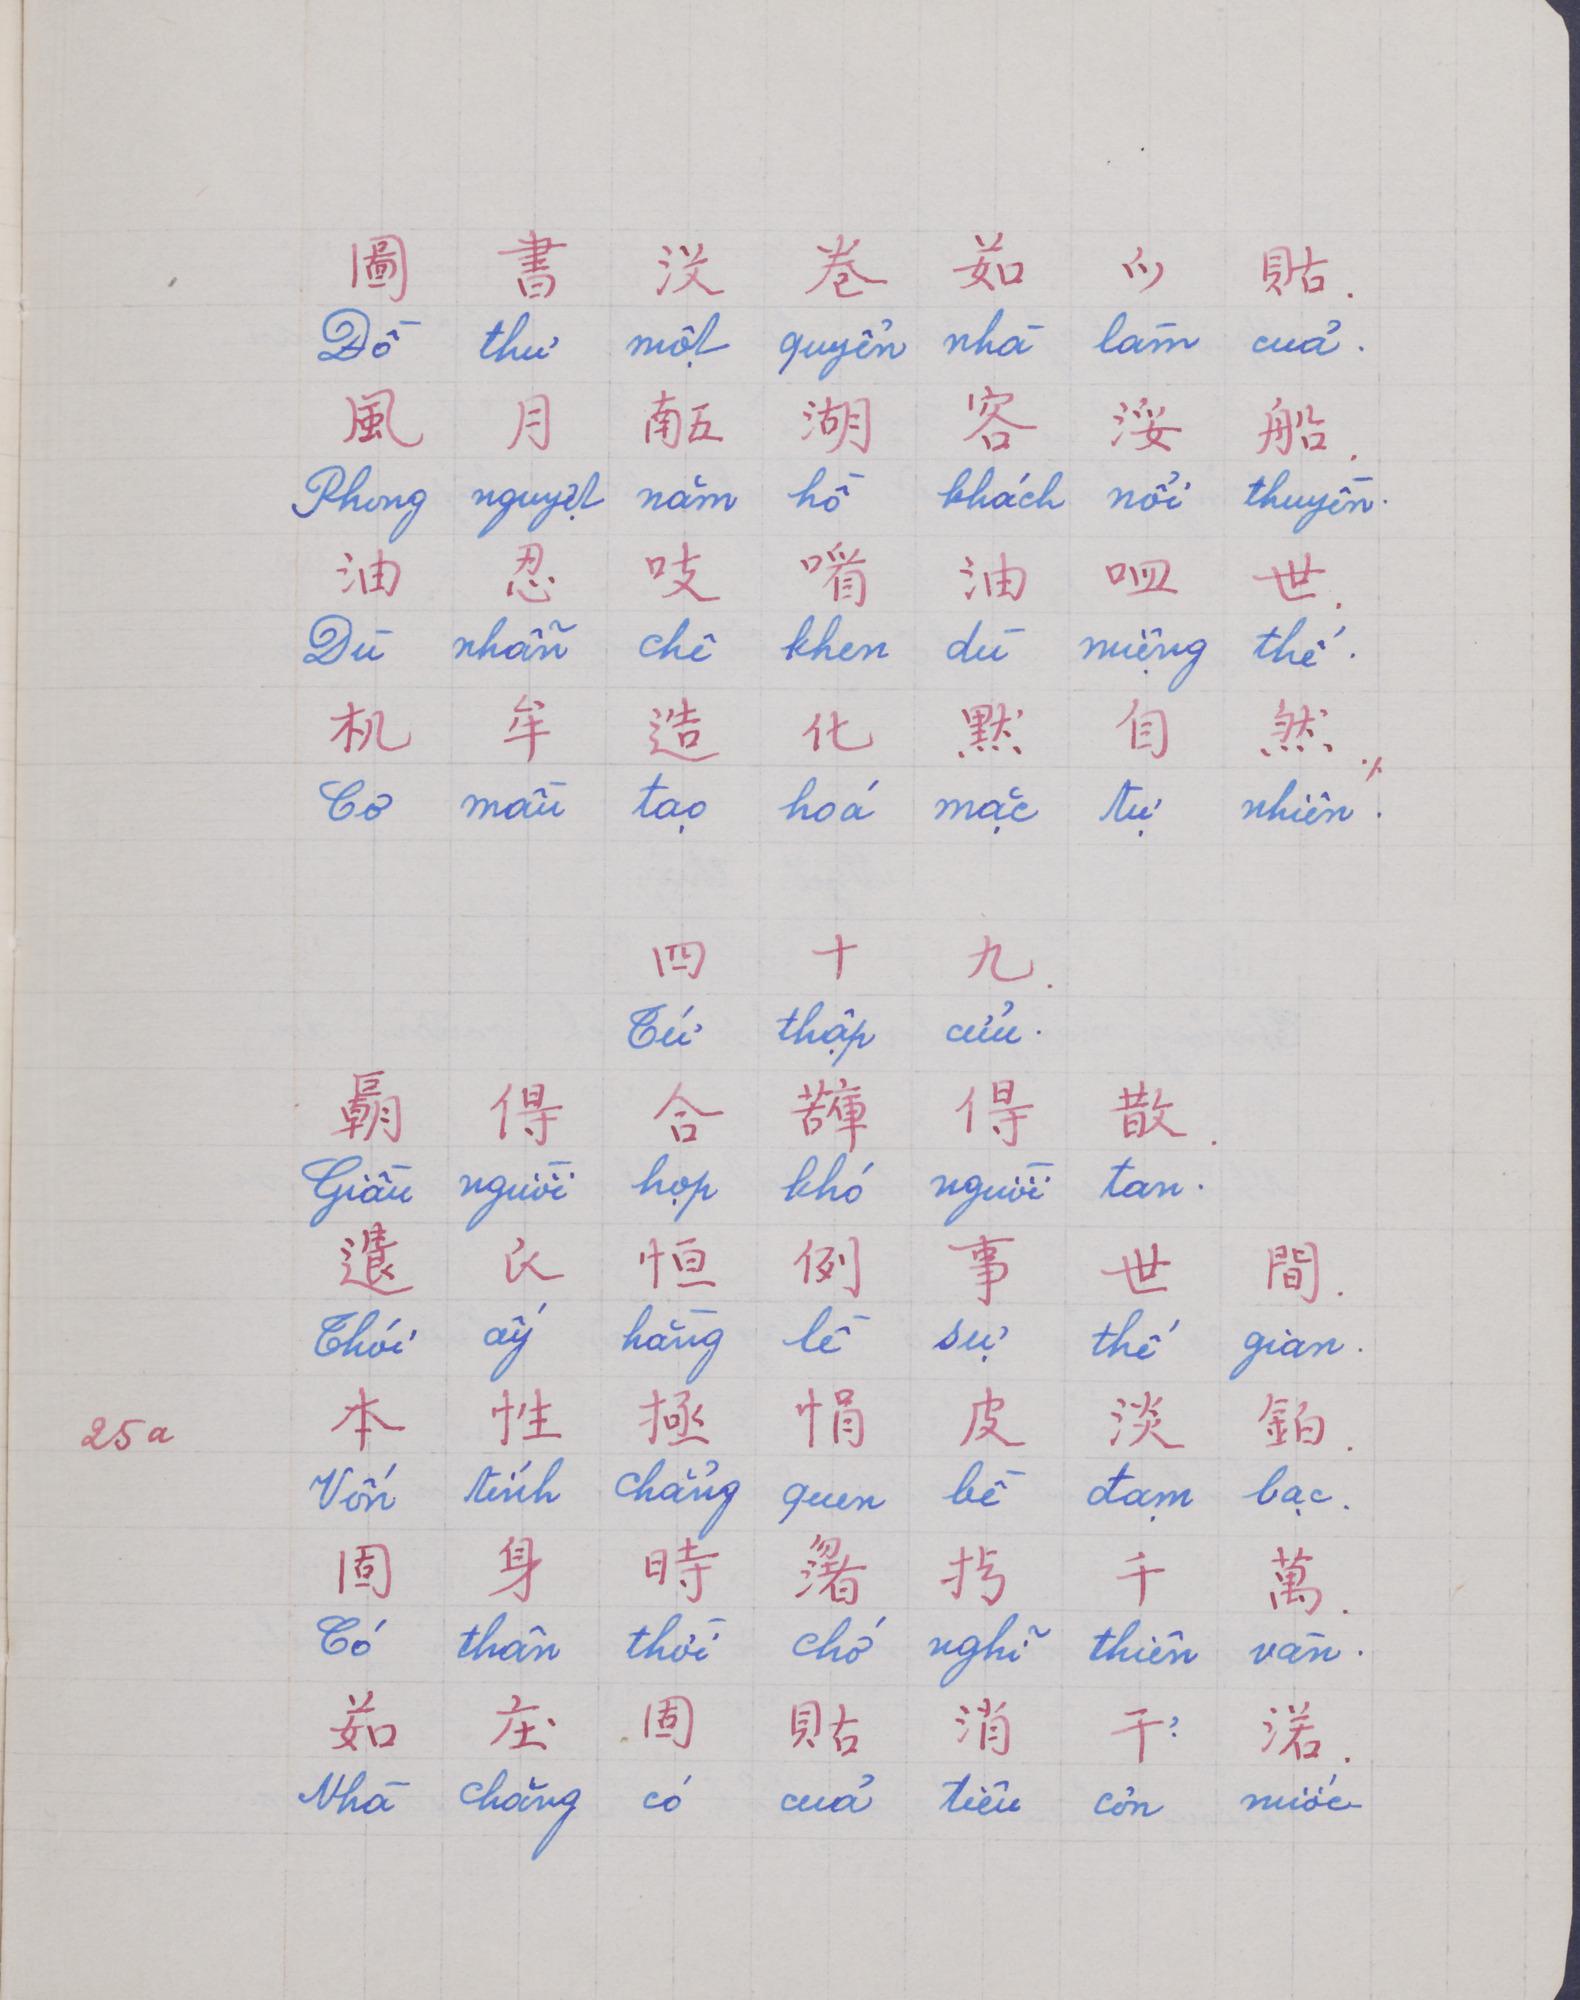 圖 書 沒 卷 茹 𫜵 貼.
Đồ thư một quyển nhà làm của.
風 月 𠄼 湖 容 浽 船.
Phong nguyệt năm hồ khách nổi thuyền.
油 忍 吱 㗂 油 𠰘 世.
Dù nhẫn chê khen dù miệng thế.
机 牟 造 化 默 自 然.
Cơ mầu tạo hoá mặc tự nhiên.
四 十 九.
Tứ thập cửu.
得 合 得 散.
Giầu người họp khó người tan.
恒 例 事 世 間.
Thói ấy hằng lề sự thế gian.
25a
本 性 拯 悁 皮 淡 鉑.
Vốn tính chẳng quen bề đạm bạc.
固 身 時 渚 千 萬.
Có thân thời chớ nghĩ thiên vàn.
茹 庄 固 貼 消 干 渃.
Nhà chăng có của tiêu cơn nước